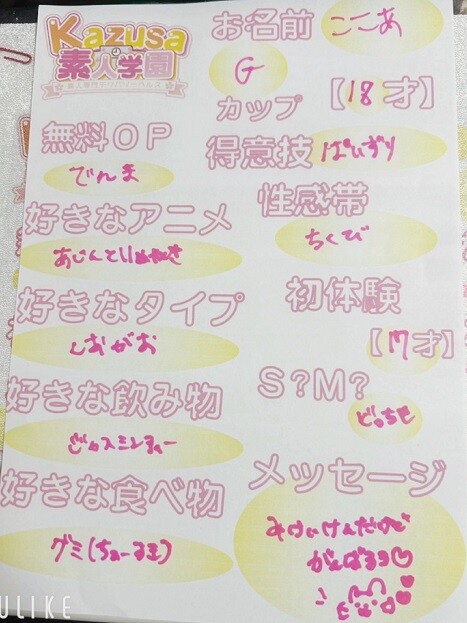 Kazusa
素人学園
素人専門デリバリーヘルス
お名前 ここあ
G
カップ 【18才】
無料OP
でんま
得意技 ぱいずり
好きなアニメ
性感帯
ちくび
好きなタイプ
しおがお
初体験
【17才】
好きな飲み物
S?M?
どっちも
好きな食べ物
グミ
メッセージ
みけいけんだけど
がんばるヨ♡
ULIKE